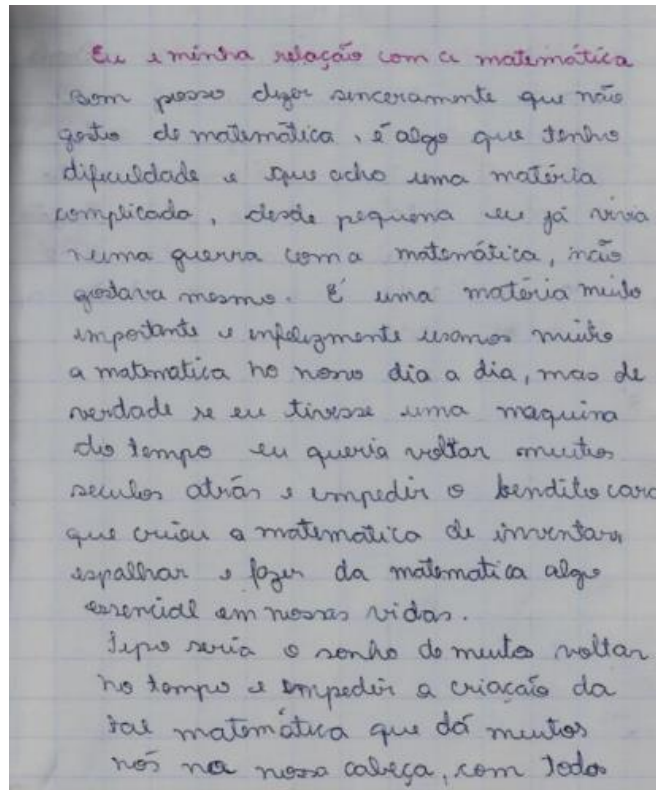 Eu e minha relação com a matemática
Bom posso dizer sinceramente que não
gosto de matemática, é algo que tenho
dificuldade e que acho uma matéria
complicada, desde pequena eu já vivia
numa guerra com a matemática, não
gostava mesmo. É uma matéria muito
importante e infelizmente usamos muito
a matematica no nosso dia a dia, mas de
verdade se eu tivesse uma maquina
do tempo eu queria voltar muitos
seculos atrás e impedir o bendito cara
que criou a matemática de inventar,
espalhar e fazer da matematica algo
essencial em nossas vidas.
Tipo seria o sonho de muitos voltar
no tempo e impedir a criação da
tal matemática que dá muitos
nós na nossa cabeça, com todos